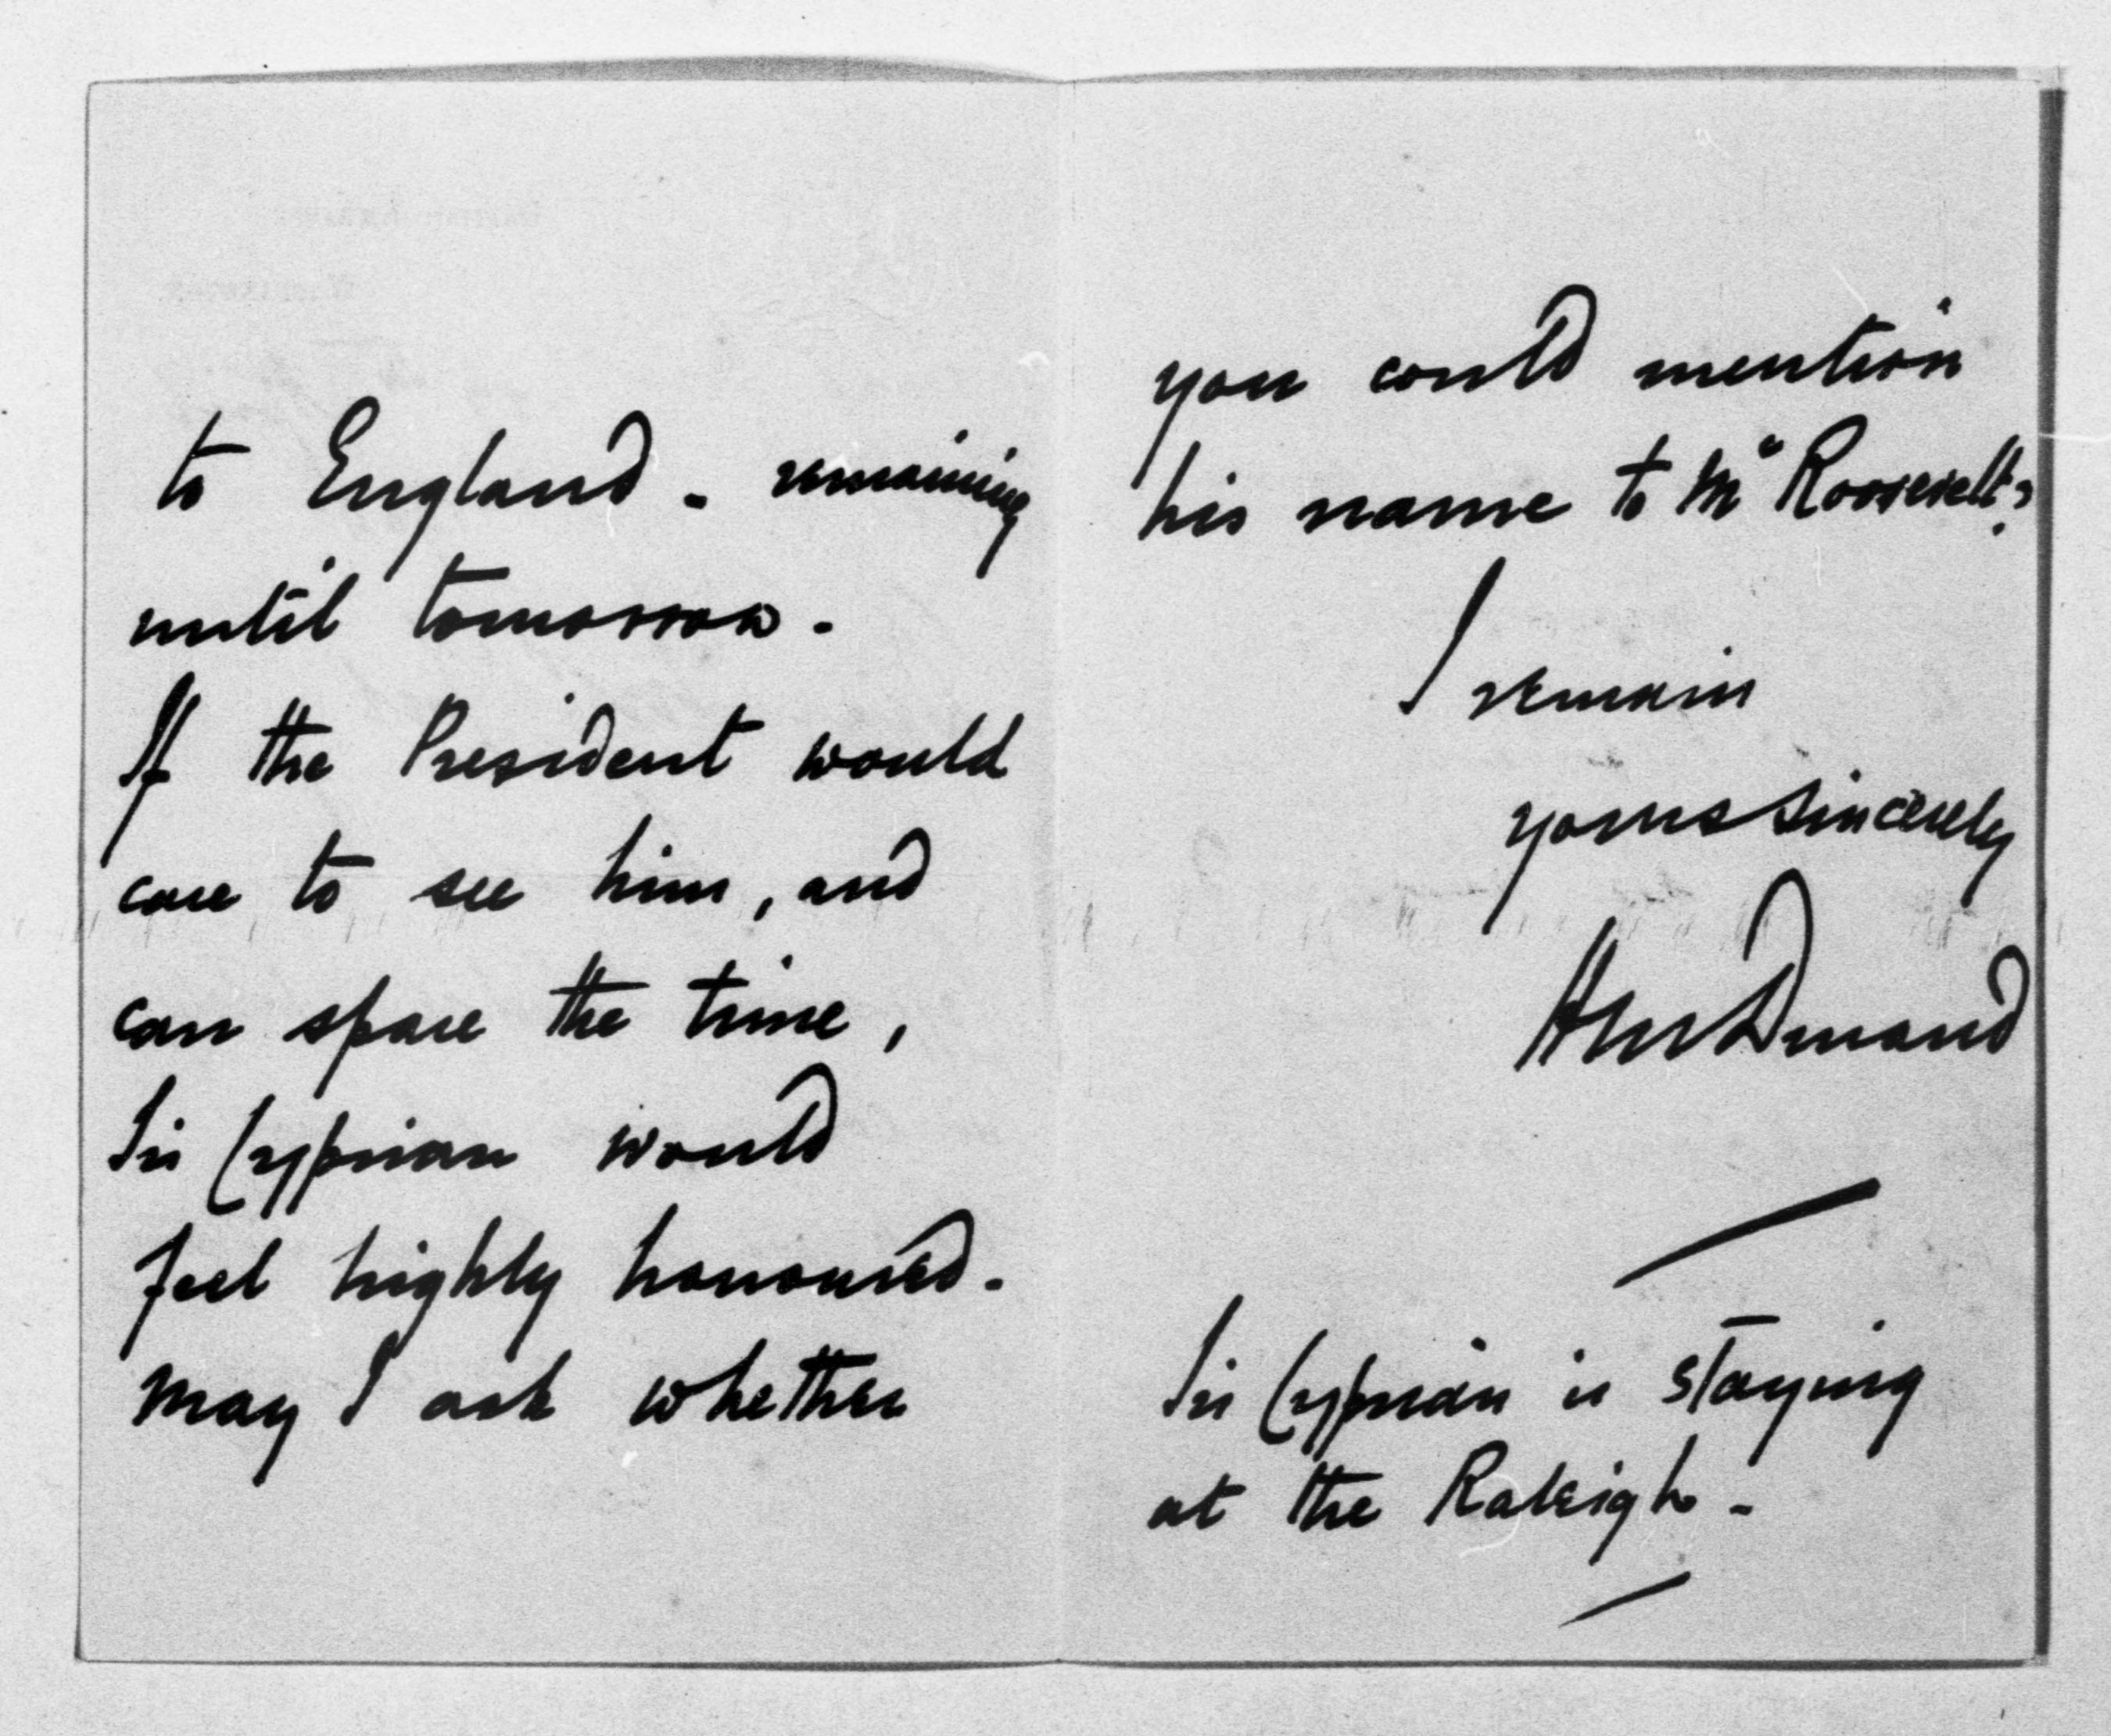 to England - remaining
until tomorrow.
If the President would
care to see him, and
can spare the time,
Sir Cyprian would
feel highly honoured.
May I ask whether
you could mention
his name to Mr Roosevelt?
I remain
yours sincerely
HM Durand
Sir Cyprian is staying
at the Raleigh -